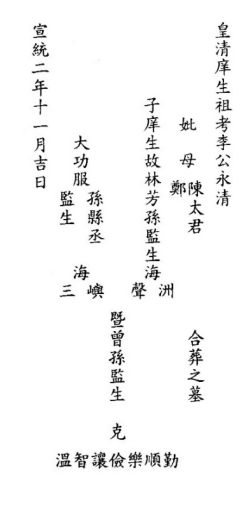 皇清庠生祖考李公永清
妣母鄭陳太君
合葬之墓
子庠生故林芳孫監生海洲聲
暨曾孫監生克勤順樂儉讓智溫
大功服孫縣丞監生海嶼三
宣統二年十一月吉日